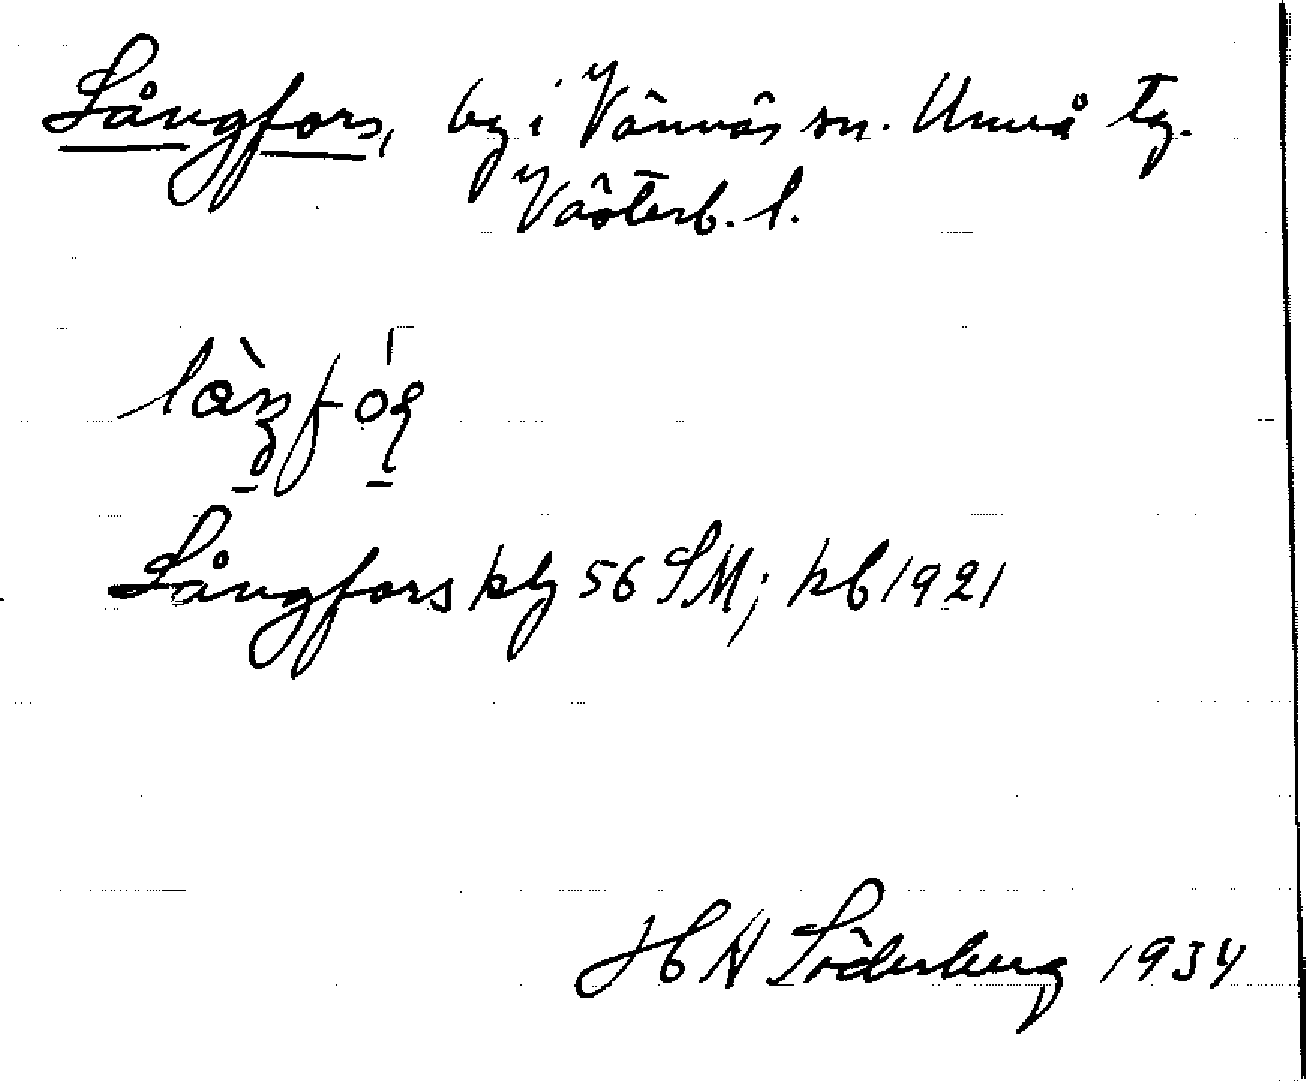 Långfors, by i Vännäs sn. Umeå tg.
Västerb. l.
Långfors 56 SM; 1921
H Söderberg 1934